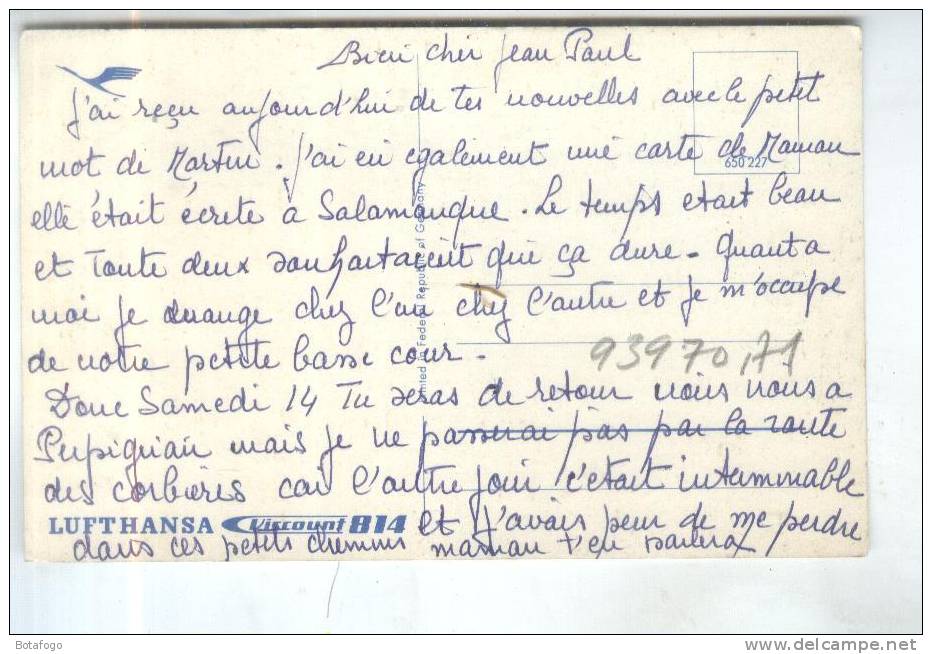 Bien cher Jean Paul
J'ai reçu aujourd'hui de tes nouvelles avec le petit
mot de Martin. J'ai eu egalement une carte de Maman
650 227
elle était écrite à Salamanque. Le temps etait beau
et toute deux souhaitaient que ça dure. Quant a
moi je mange chez l'un chez l'autre et je m'occupe
de notre petite basse cour.
93970,71
Printed in Federal Republic of Germany
Donc Samedi 14 Tu seras de retour nous a
Perpignan mais je ne passerai pas par la route
des corbières car l'autre jour c'etait interminable
LUFTHANSA Viscount 814 et j'avais peur de me perdre
dans ces petits chemins maman t'en parlera
Botafogo
www.delcampe.net